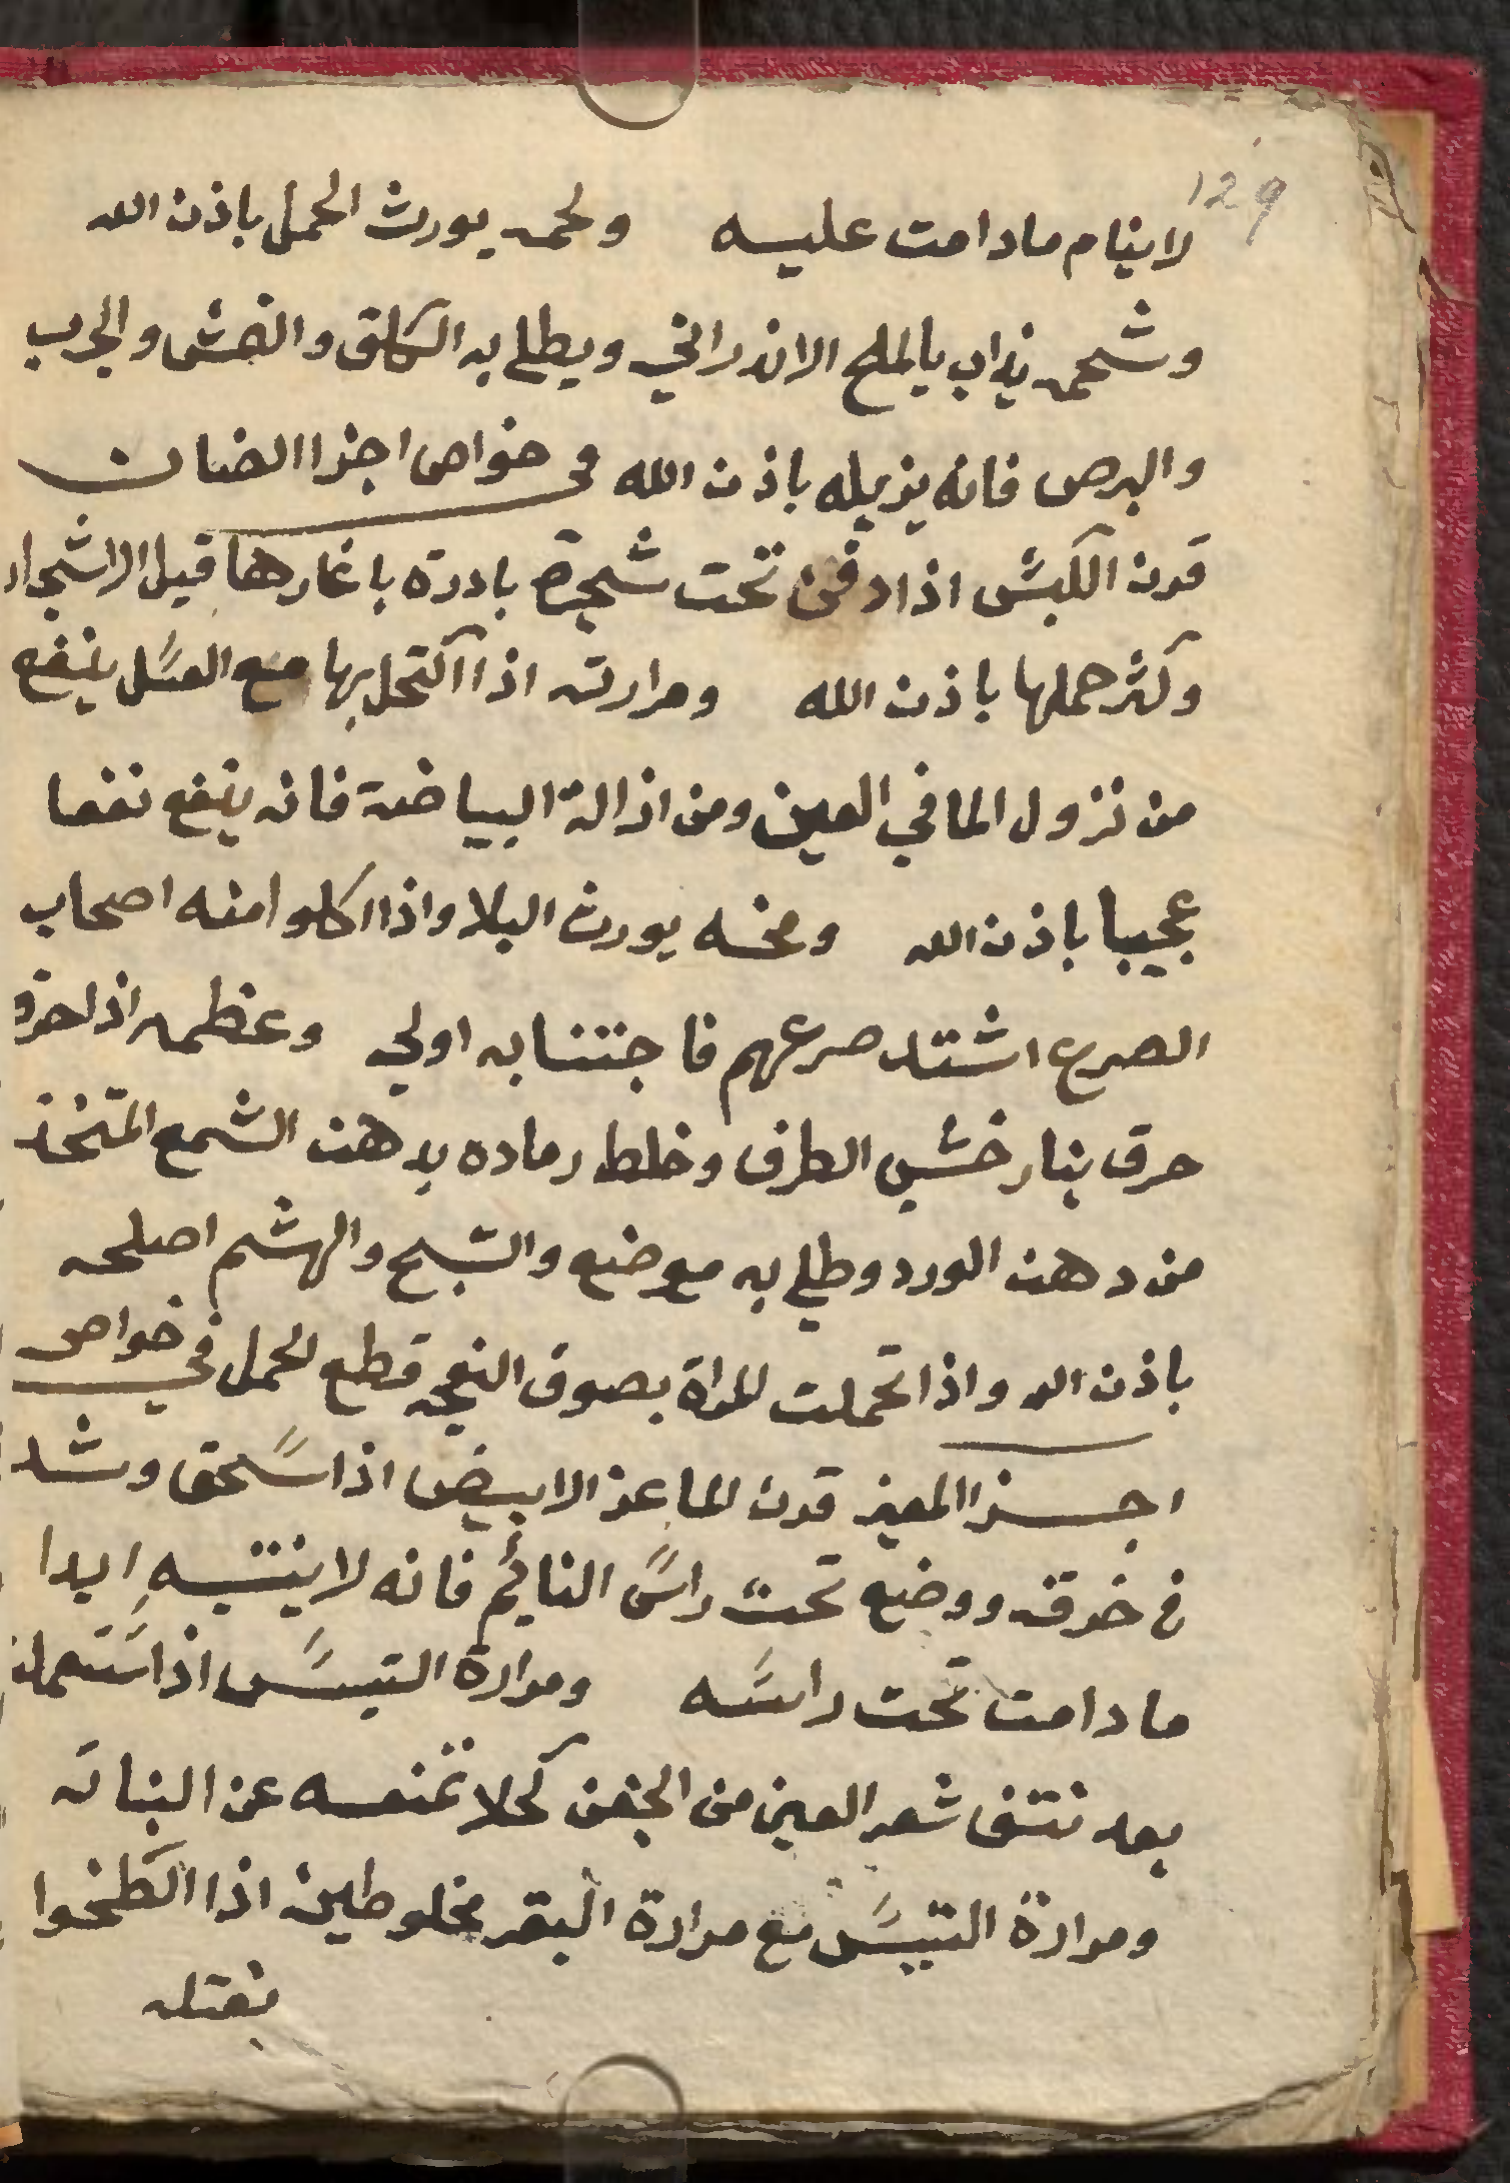 129
لا ينام ما دامت عليه ولحمه يورث الحمل باذن الله
وشحمه يذاب بالملح الاندراني ويطلي به الكلق والنمش والجرب
والبرص فانه يزيله باذن الله في خواص اجزا الضان
قرن الكبش اذا دفن تحت شجرة بادرة باثمارها قبل الاشجار
وكثر حملها باذن الله ومرارته اذا اكتحل بها مع العسل ينفع
من نزول الما في العين ومن اذالة البياضة فانه ينفع نفعا
عجيبا باذن الله ومخه يورث البلا واذا اكلوا منه اصحاب
الصرع اشتد صرعهم فاجتنابه اولي وعظمه اذا احرق
حرق بنار خشب الطرف وخلط رماده بدهن الشمع المتخذ
من دهن الورد وطلي به موضع والشبح والهشم اصلحه
باذن الله واذا تحملت المراة بصوف النعجه قطع الحمل في خواص
اجزا المعيز قرن الماعز الابيض اذا سحق وشد
في خرقه ووضع تحت راس النائم فانه لا ينتبه ابدا
ما دامت تحت راسه ومرارة التيس اذا ستعملت
بعد نتف شعر العين من الجفن كحلا تمنعه عن النبات
ومرارة التيس مع مرارة البقر مخلوطين اذا الطخوا
بفتله